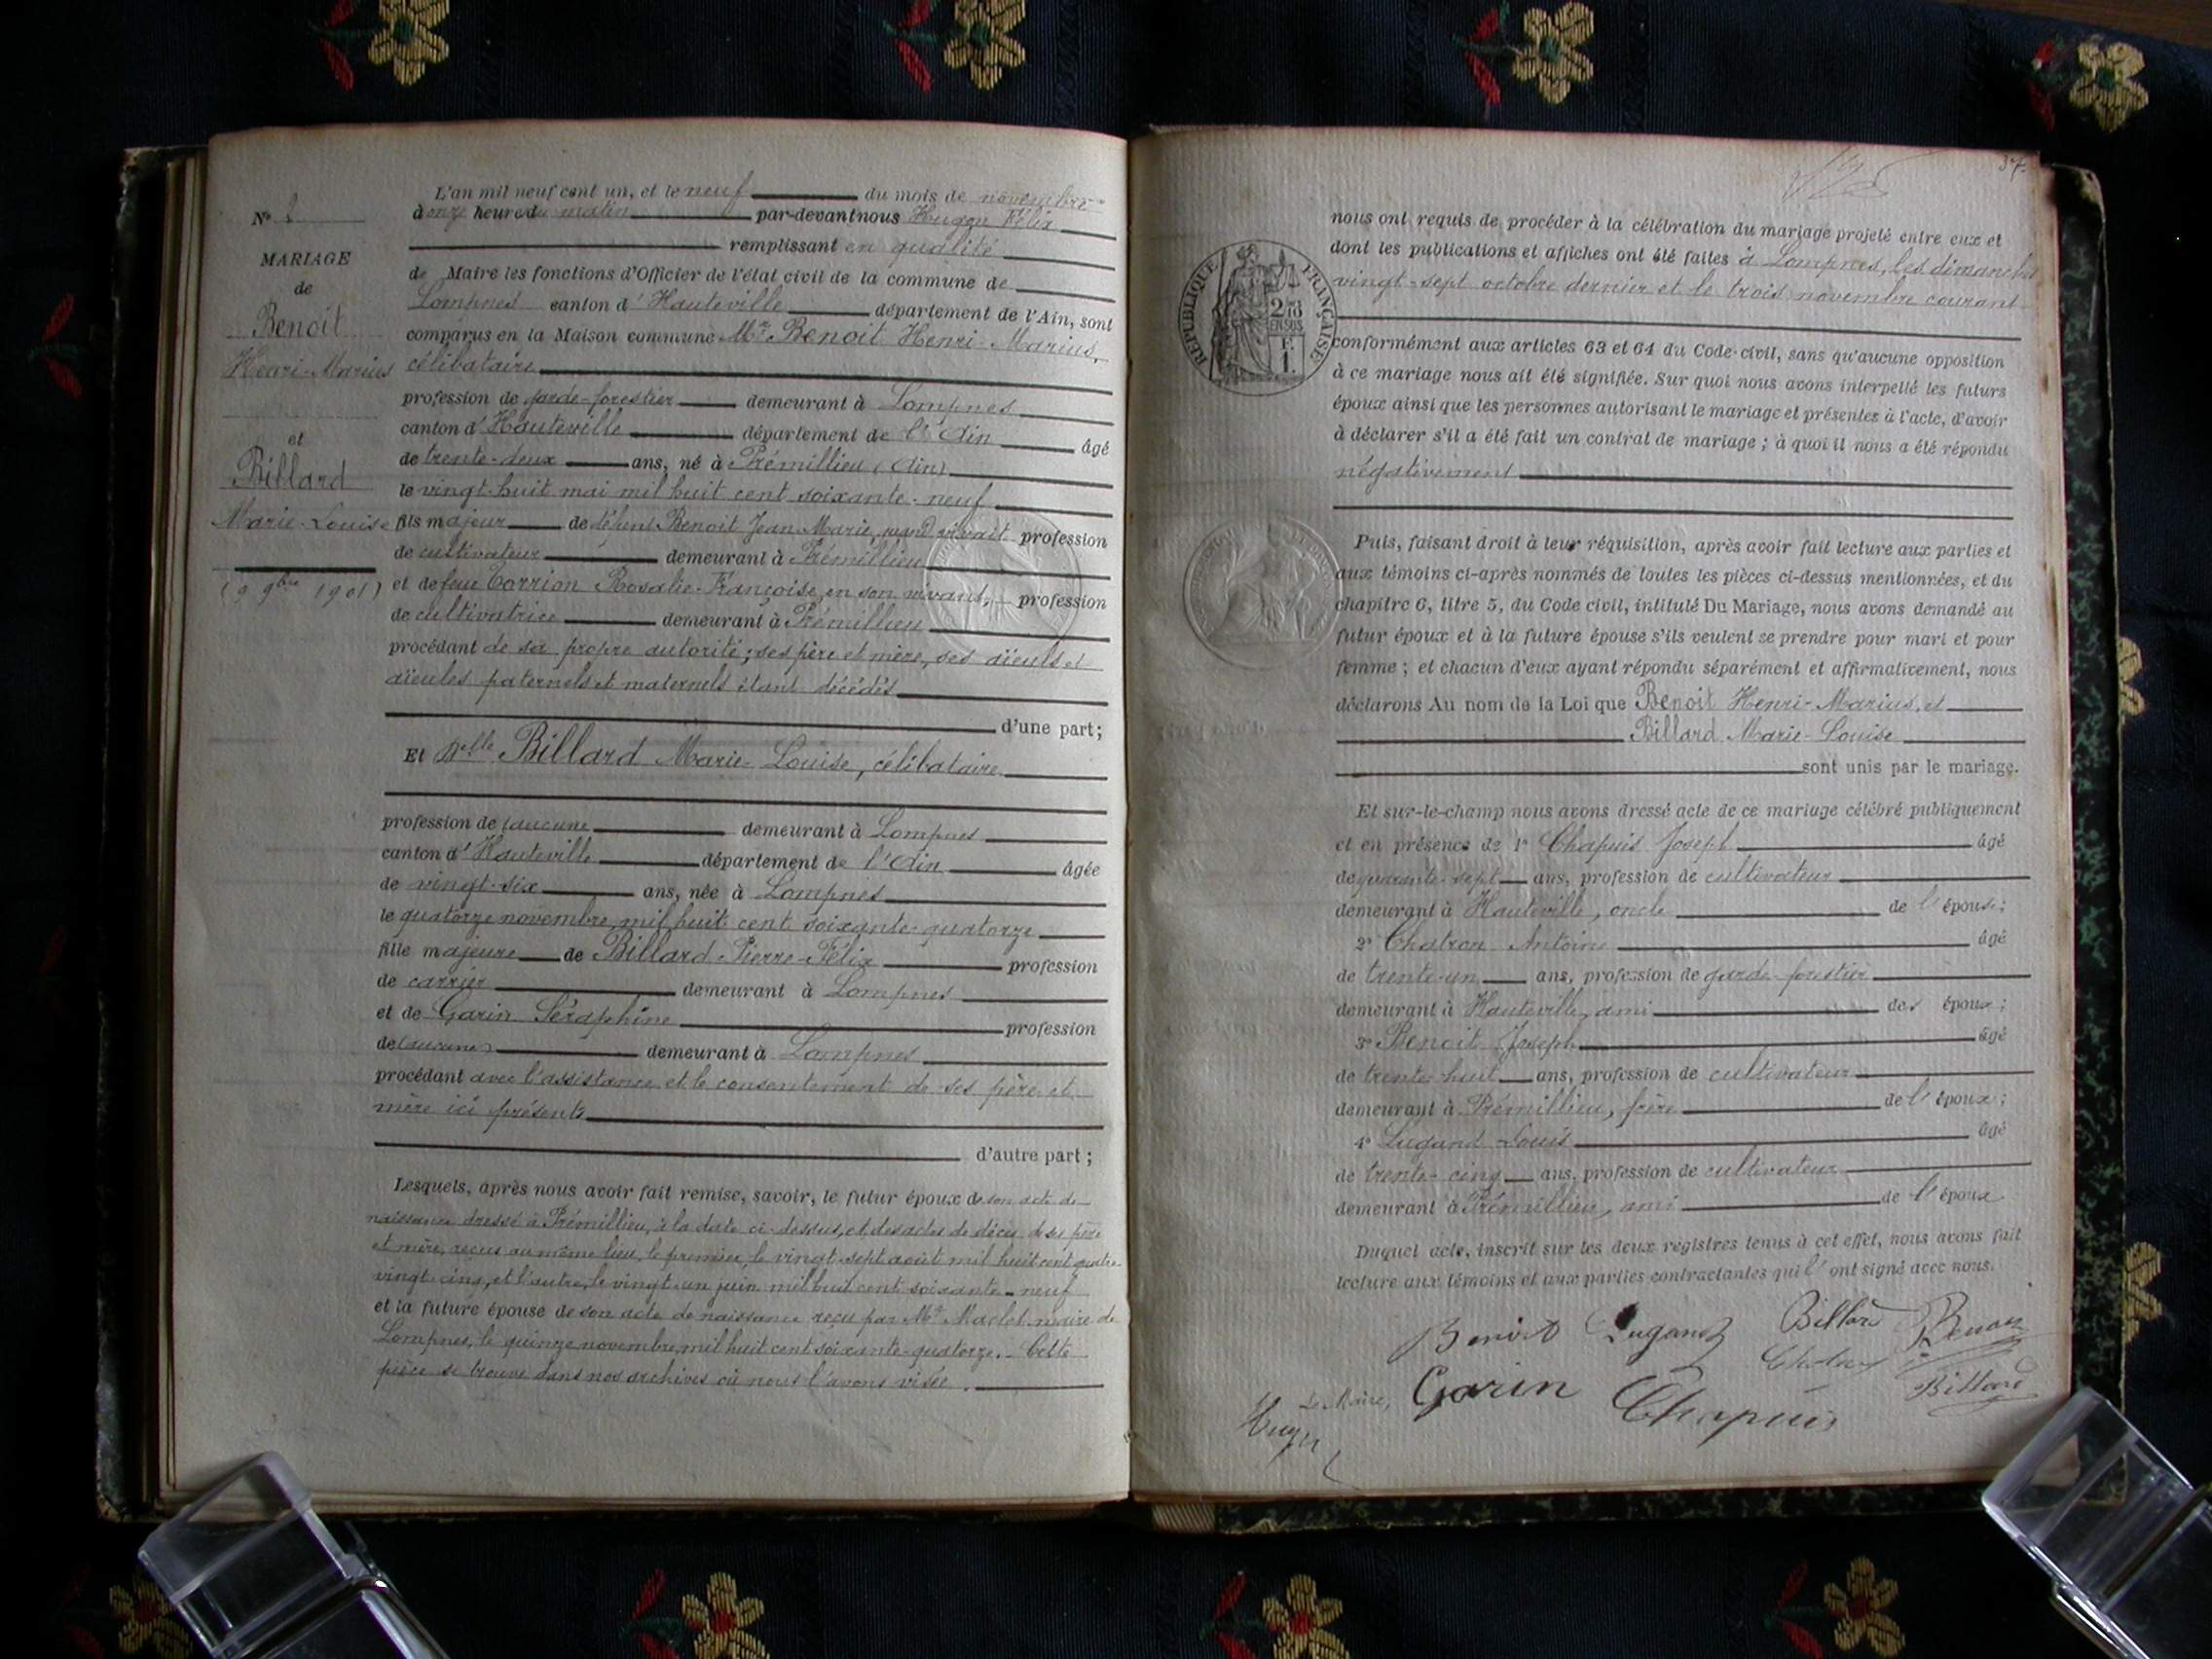 N° 2
MARIAGE
de
Benoit
Henri-Marius
et
Billard
Marie-Louise
(9 9bre 1901)
L'an mil neuf cent un, et le neuf du mois de novembre
à onze heure du matin par-devant nous Hugon Félix
remplissant en qualité
de Maire les fonctions d'Officier de l'état civil de la commune de
Lompnes canton d'Hauteville département de l'Ain, sont
comparus en la Maison commune Mr Benoit Henri-Marius,
célibataire
profession de garde-forestier demeurant à Lompnes
canton d'Hauteville département de l'Ain âgé
de trente-deux ans, né à Prémillieu (Ain)
le vingt-huit mai mil huit cent soixante-neuf
fils majeur de défunt Benoit Jean-Marie, quand vivait profession
de cultivateur demeurant à Prémillieu
et de feue Corrion Rosalie-Françoise, en son vivant, profession
de cultivatrice demeurant à Prémillieu
procédant de sa propre autorité; ses père et mère, ses aïeuls et
aïeules paternels et maternels étant décédés
d'une part;
Et Delle Billard Marie-Louise, célibataire
profession de (aucune demeurant à Lompnes
canton d'Hauteville département de l'Ain âgée
de vingt-six ans, née à Lompnes
le quatorze novembre mil huit cent soixante-quatorze
fille majeure de Billard Pierre-Félix profession
de carrier demeurant à Lompnes
et de Garin Séraphine profession
de (aucune) demeurant à Lompnes
procédant avec l'assistance et le consentement de ses père et
mère ici présents
d'autre part;
Lesquels, après nous avoir fait remise, savoir, le futur époux de son acte de
naissance dressé à Prémillieu, à la date ci-dessus, et des actes de décès de ses père
et mère, reçus au même lieu, le premier, le vingt-sept août mil huit cent quatre
vingt cinq, et l'autre, le vingt-un juin mil huit cent soixante-neuf
et la future épouse de son acte de naissance reçu par Mr Maclet maire de
Lompnes, le quinze novembre mil huit cent soixante-quatorze. Cette
pièce se trouve dans nos archives où nous l'avons visée.
37
nous ont requis de procéder à la célébration du mariage projeté entre eux et
dont les publications et affiches ont été faites à Lompnes, les dimanches
vingt-sept octobre dernier et le trois novembre courant
RÉPUBLIQUE FRANÇAISE
conformément aux articles 63 et 64 du Code civil, sans qu'aucune opposition
à ce mariage nous ait été signifiée. Sur quoi nous avons interpellé les futurs
époux ainsi que les personnes autorisant le mariage et présentes à l'acte, d'avoir
à déclarer s'il a été fait un contrat de mariage; à quoi il nous a été répondu
négativement
Puis, faisant droit à leur réquisition, après avoir fait lecture aux parties et
aux témoins ci-après nommés de toutes les pièces ci-dessus mentionnées, et du
chapitre 6, titre 5, du Code civil, intitulé Du Mariage, nous avons demandé au
futur époux et à la future épouse s'ils veulent se prendre pour mari et pour
femme; et chacun d'eux ayant répondu séparément et affirmativement, nous
déclarons Au nom de la Loi que Benoit Henri-Marius, et
Billard Marie-Louise
sont unis par le mariage.
Et sur-le-champ nous avons dressé acte de ce mariage célébré publiquement
et en présence de 1° Chapuis Joseph âgé
de quarante-sept ans, profession de cultivateur
demeurant à Hauteville, oncle de l'épouse;
2° Chatron Antoine âgé
de trente-un ans, profession de garde-forestier
demeurant à Hauteville, ami des époux;
3° Benoit Joseph âgé
de trente-huit ans, profession de cultivateur
demeurant à Prémillieu, frère de l'époux;
4° Lugand Louis âgé
de trente-cinq ans, profession de cultivateur
demeurant à Prémillieu, ami de l'époux
Duquel acte, inscrit sur les deux registres tenus à cet effet, nous avons fait
lecture aux témoins et aux parties contractantes qui l'ont signé avec nous.
Benoit Lugand Billard Benoit
Billard
Le Maire, Garin Chapuis
Hugon